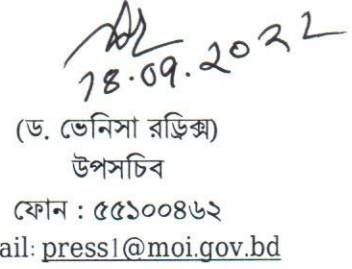 18.09.2022
(ড. ভেনিসা রড্রিক্স)
উপসচিব
ফোন : ৫৫১০০৪৬২
ail: press1@moi.gov.bd